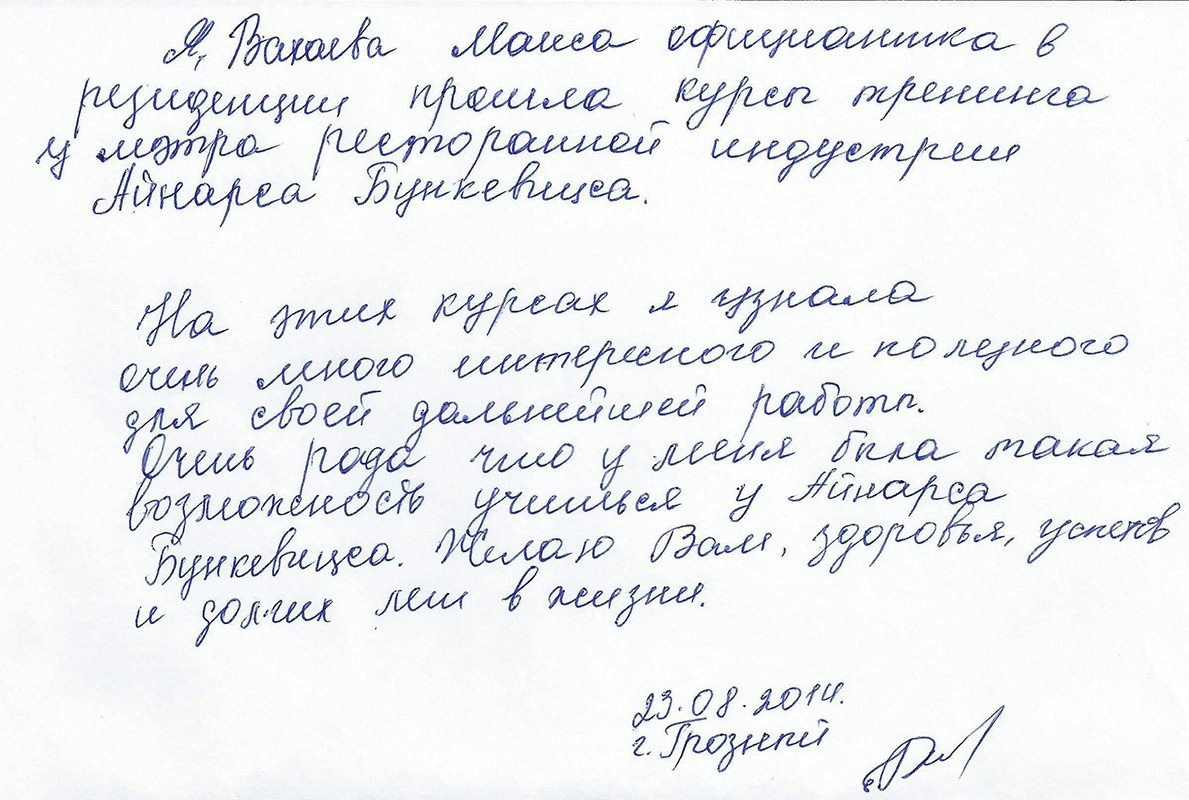 Я, Вахаева Маиса официантка в
резиденции прошла курсы тренинга
у мэтра ресторанной индустрии
Айнарса Бункевицса.
На этих курсах я узнала
очень много интересного и полезного
для своей дальнейшей работы.
Очень рада что у меня была такая
возможность учиться у Айнарса
Бункевицса. Желаю Вам, здоровья, успехов
и долгих лет в жизни.
23.08.2014.
г. Грозный